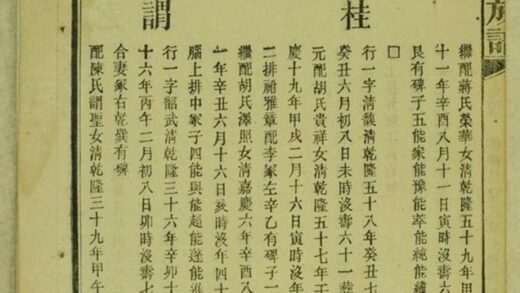 族譜
繼配蔣氏榮華女清乾隆五十九年甲
十一年辛酉八月十一日寅時沒壽六
艮有碑子五能家能豫能萃能統能
□
桂
行一字清馥清乾隆五十八年癸丑七
癸丑六月初八日未時沒壽六十一葬
元配胡氏貴祥女清乾隆五十七年壬
慶十九年甲戌二月十六日寅時沒年
二排祔雅章配李冢左辛乙有碑子一
繼配胡氏澤照女清嘉慶六年辛酉八
一年辛丑六月十六日亥時沒年四十
腦上排中冢子四能與能超能達能進
謂
行一字韶武清乾隆三十六年辛卯十
十六年丙午二月初八日卯時沒壽七
合妻冢右乾巽有碑
配陳氏謂聖女清乾隆三十九年甲午